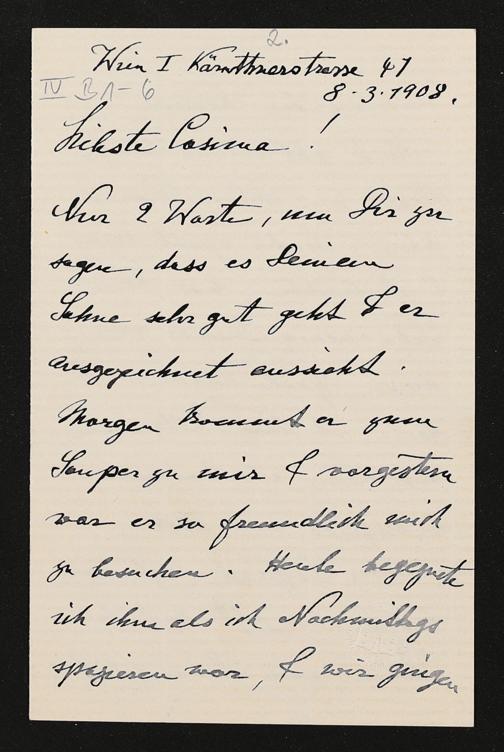 2.
Wien I Kärnthnerstrasse 41
IV B1-6
8.3.1908.
Liebste Cosima!
Nur 2 Worte, um Dir zu
sagen, dass es Deinem
Sohne sehr gut geht & er
ausgezeichnet aussieht.
Morgen kommt er zum
Souper zu mir & vorgestern
war er so freundlich mich
zu besuchen. Heute begegnete
ich ihm als ich Nachmittags
spazieren war, & wir gingen